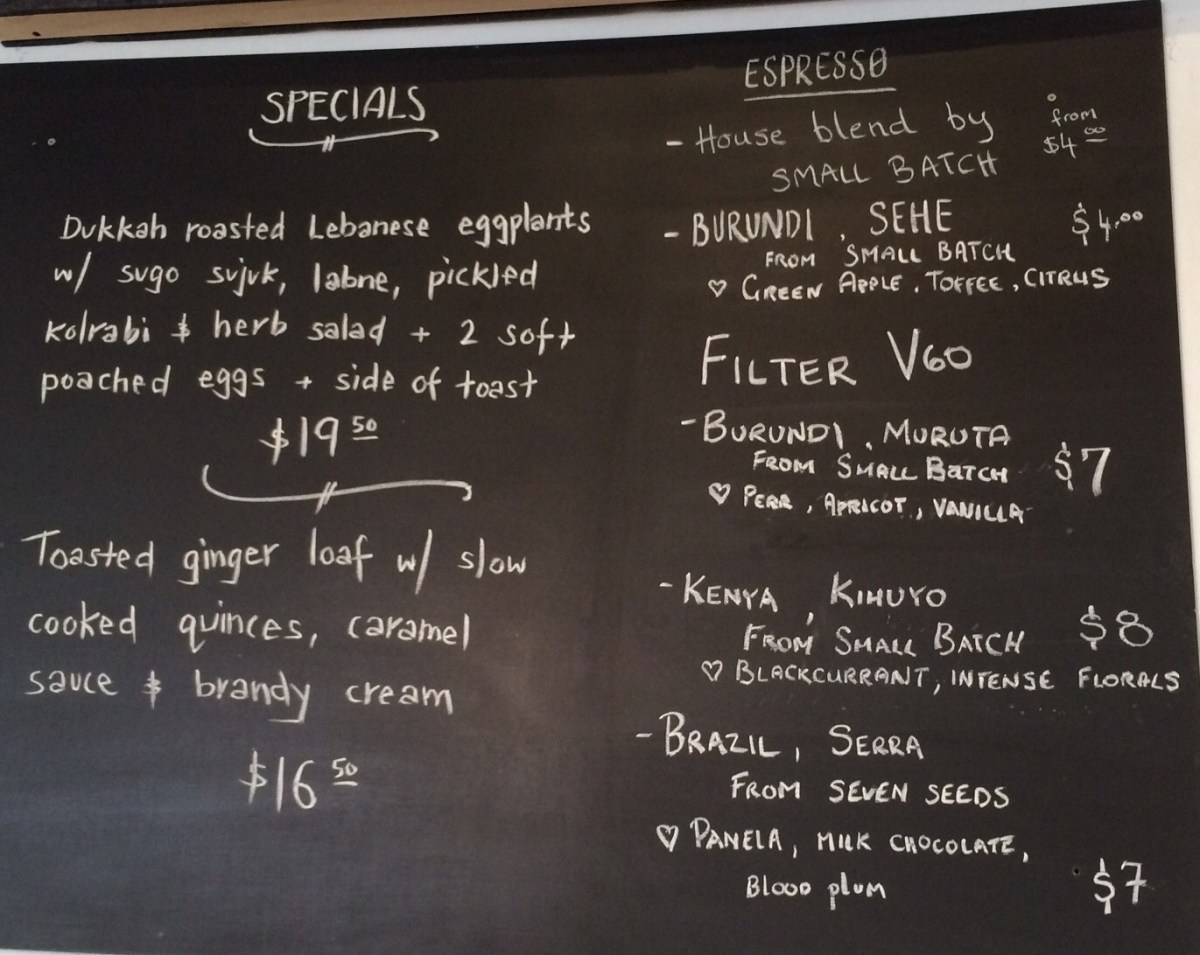 SPECIALS
Dukkah roasted Lebanese eggplants
w/ sugo sujuk, labne, pickled
kolrabi & herb salad + 2 soft
poached eggs + side of toast
$19 50
Toasted ginger loaf w/ slow
cooked quinces, caramel
sauce & brandy cream
$16 50
ESPRESSO
- House blend by from
SMALL BATCH $4 00
- BURUNDI, SEHE $4.00
FROM SMALL BATCH
♡ GREEN APPLE, TOFFEE, CITRUS
FILTER V60
- BURUNDI, MURUTA
FROM SMALL BATCH $7
♡ PEAR, APRICOT, VANILLA
- KENYA, KIHUYO
FROM SMALL BATCH $8
♡ BLACKCURRANT, INTENSE FLORALS
- BRAZIL, SERRA
FROM SEVEN SEEDS
♡ PANELA, MILK CHOCOLATE,
Blood plum $7